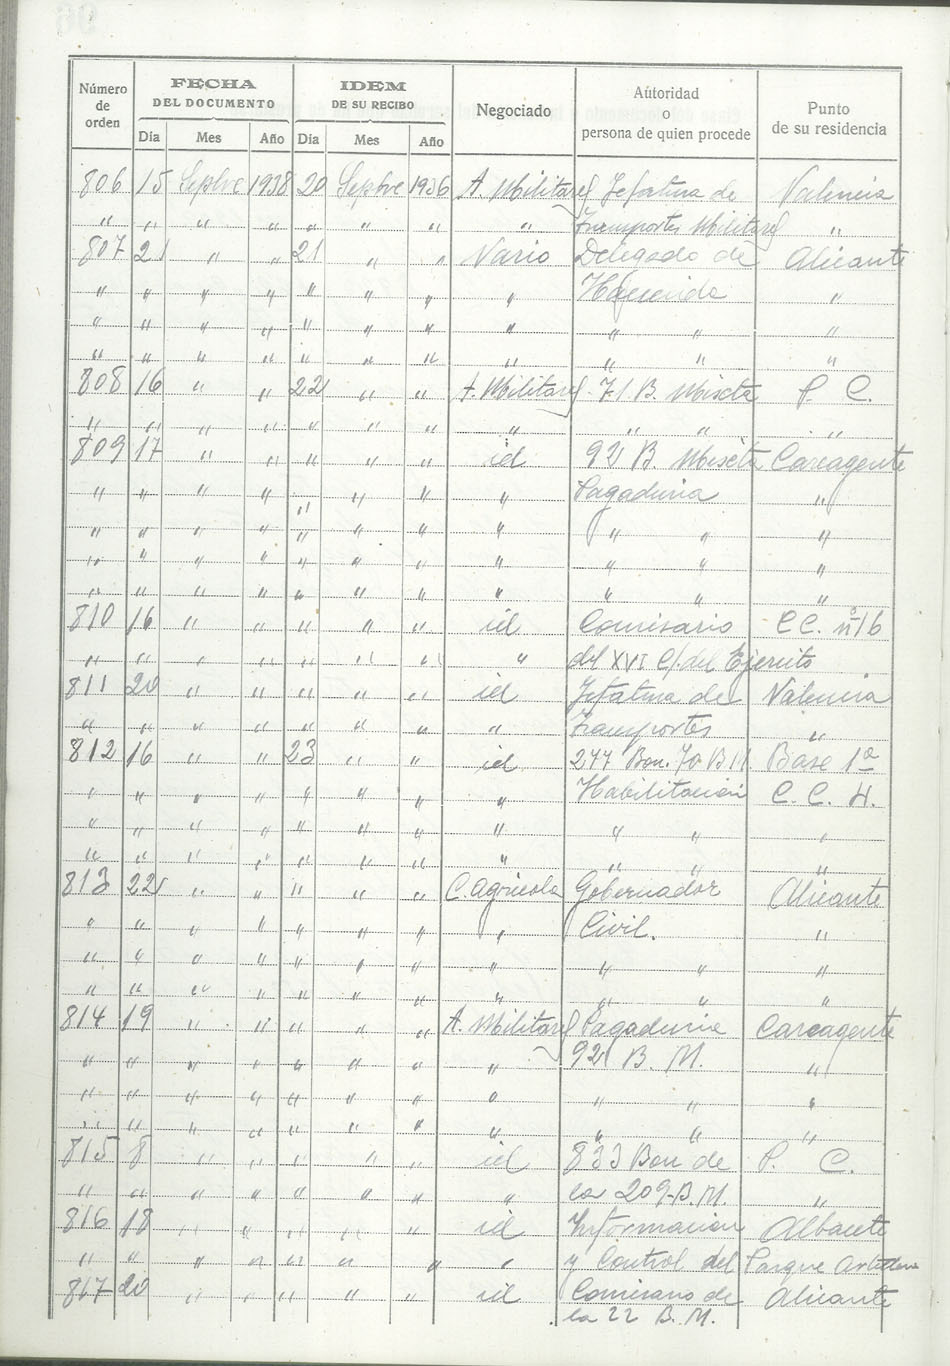 Número de orden | FECHA DEL DOCUMENTO | IDEM DE SU RECIBO | Negociado | Autoridad o persona de quien procede | Punto de su residencia
Día | Mes | Año | Día | Mes | Año
806 15 Sepbre 1938 20 Sepbre 1936 A. Militares Jefatura de Valencia
" " " " " " " " Transportes Militares "
807 21 " " 21 " " Vario Delegado de Alicante
" " " " " " " " Hacienda "
" " " " " " " " " " "
" " " " " " " " " " "
808 16 " " 22 " " A. Militares 71 B. Mixta P. C.
" " " " " " " " " " "
809 17 " " " " " id 92 B Mixta Carcagente
" " " " " " " " Pagaduria "
" " " " " " " " " " "
" " " " " " " " " " "
" " " " " " " " " " "
810 16 " " " " " id Comisario CC. nº 16
" " " " " " " " del XVI C/. del Ejercito
811 20 " " " " " id Jefatura de Valencia
" " " " " " " " Transportes "
812 16 " " 23 " " id 277 Bon. 70 B M Base 1ª
" " " " " " " " Habilitacion C. C. H.
" " " " " " " " " " "
" " " " " " " " " " "
813 22 " " " " " C. Agricola Gobernador Alicante
" " " " " " " " Civil. "
" " " " " " " " " " "
" " " " " " " " " " "
814 19 " " " " " A. Militares Pagaduria Carcagente
" " " " " " " " 92 B. M. "
" " " " " " " " " " "
" " " " " " " " " " "
815 8 " " " " " id 833 Bon de P. C.
" " " " " " " " la 209-B.M. "
816 18 " " " " " id Informacion Albacete
" " " " " " " " y Control del Parque Artilleria
817 20 " " " " " id Comisario de Alicante
la 22 B. M.